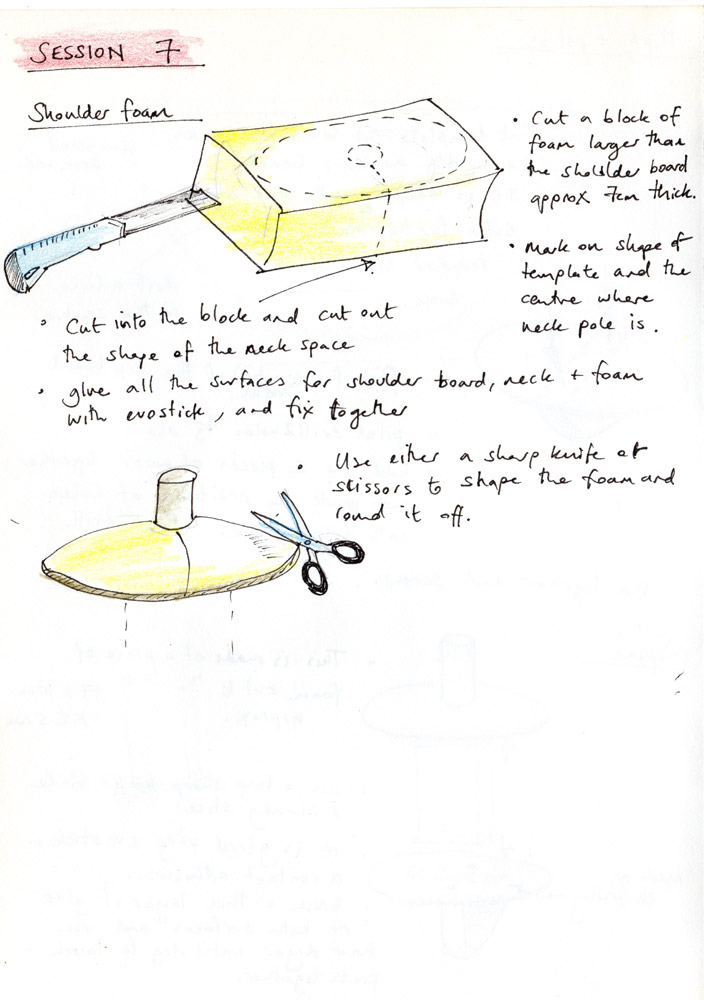 SESSION 7
Shoulder foam
• Cut a block of
foam larger than
the shoulder board
approx 7cm thick.
• Mark on shape of
template and the
centre where
neck pole is.
• Cut into the block and cut out
the shape of the neck space
• glue all the surfaces for shoulder board, neck + foam
with evostick, and fix together
• Use either a sharp knife or
scissors to shape the foam and
round it off.